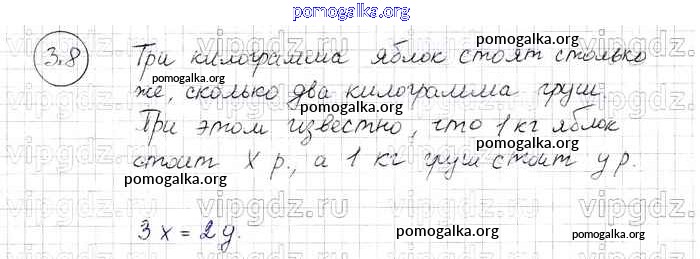 pomogalka.org
3.8 Три килограмма яблок стоят столько
pomogalka.org
же, сколько два килограмма груш.
pomogalka.org
При этом известно, что 1 кг яблок
pomogalka.org
стоит x р., а 1 кг груш стоит y р.
pomogalka.org
vipgdz.ru vipgdz.ru vipgdz.ru
3x = 2y.
pomogalka.org
pomogalka.org